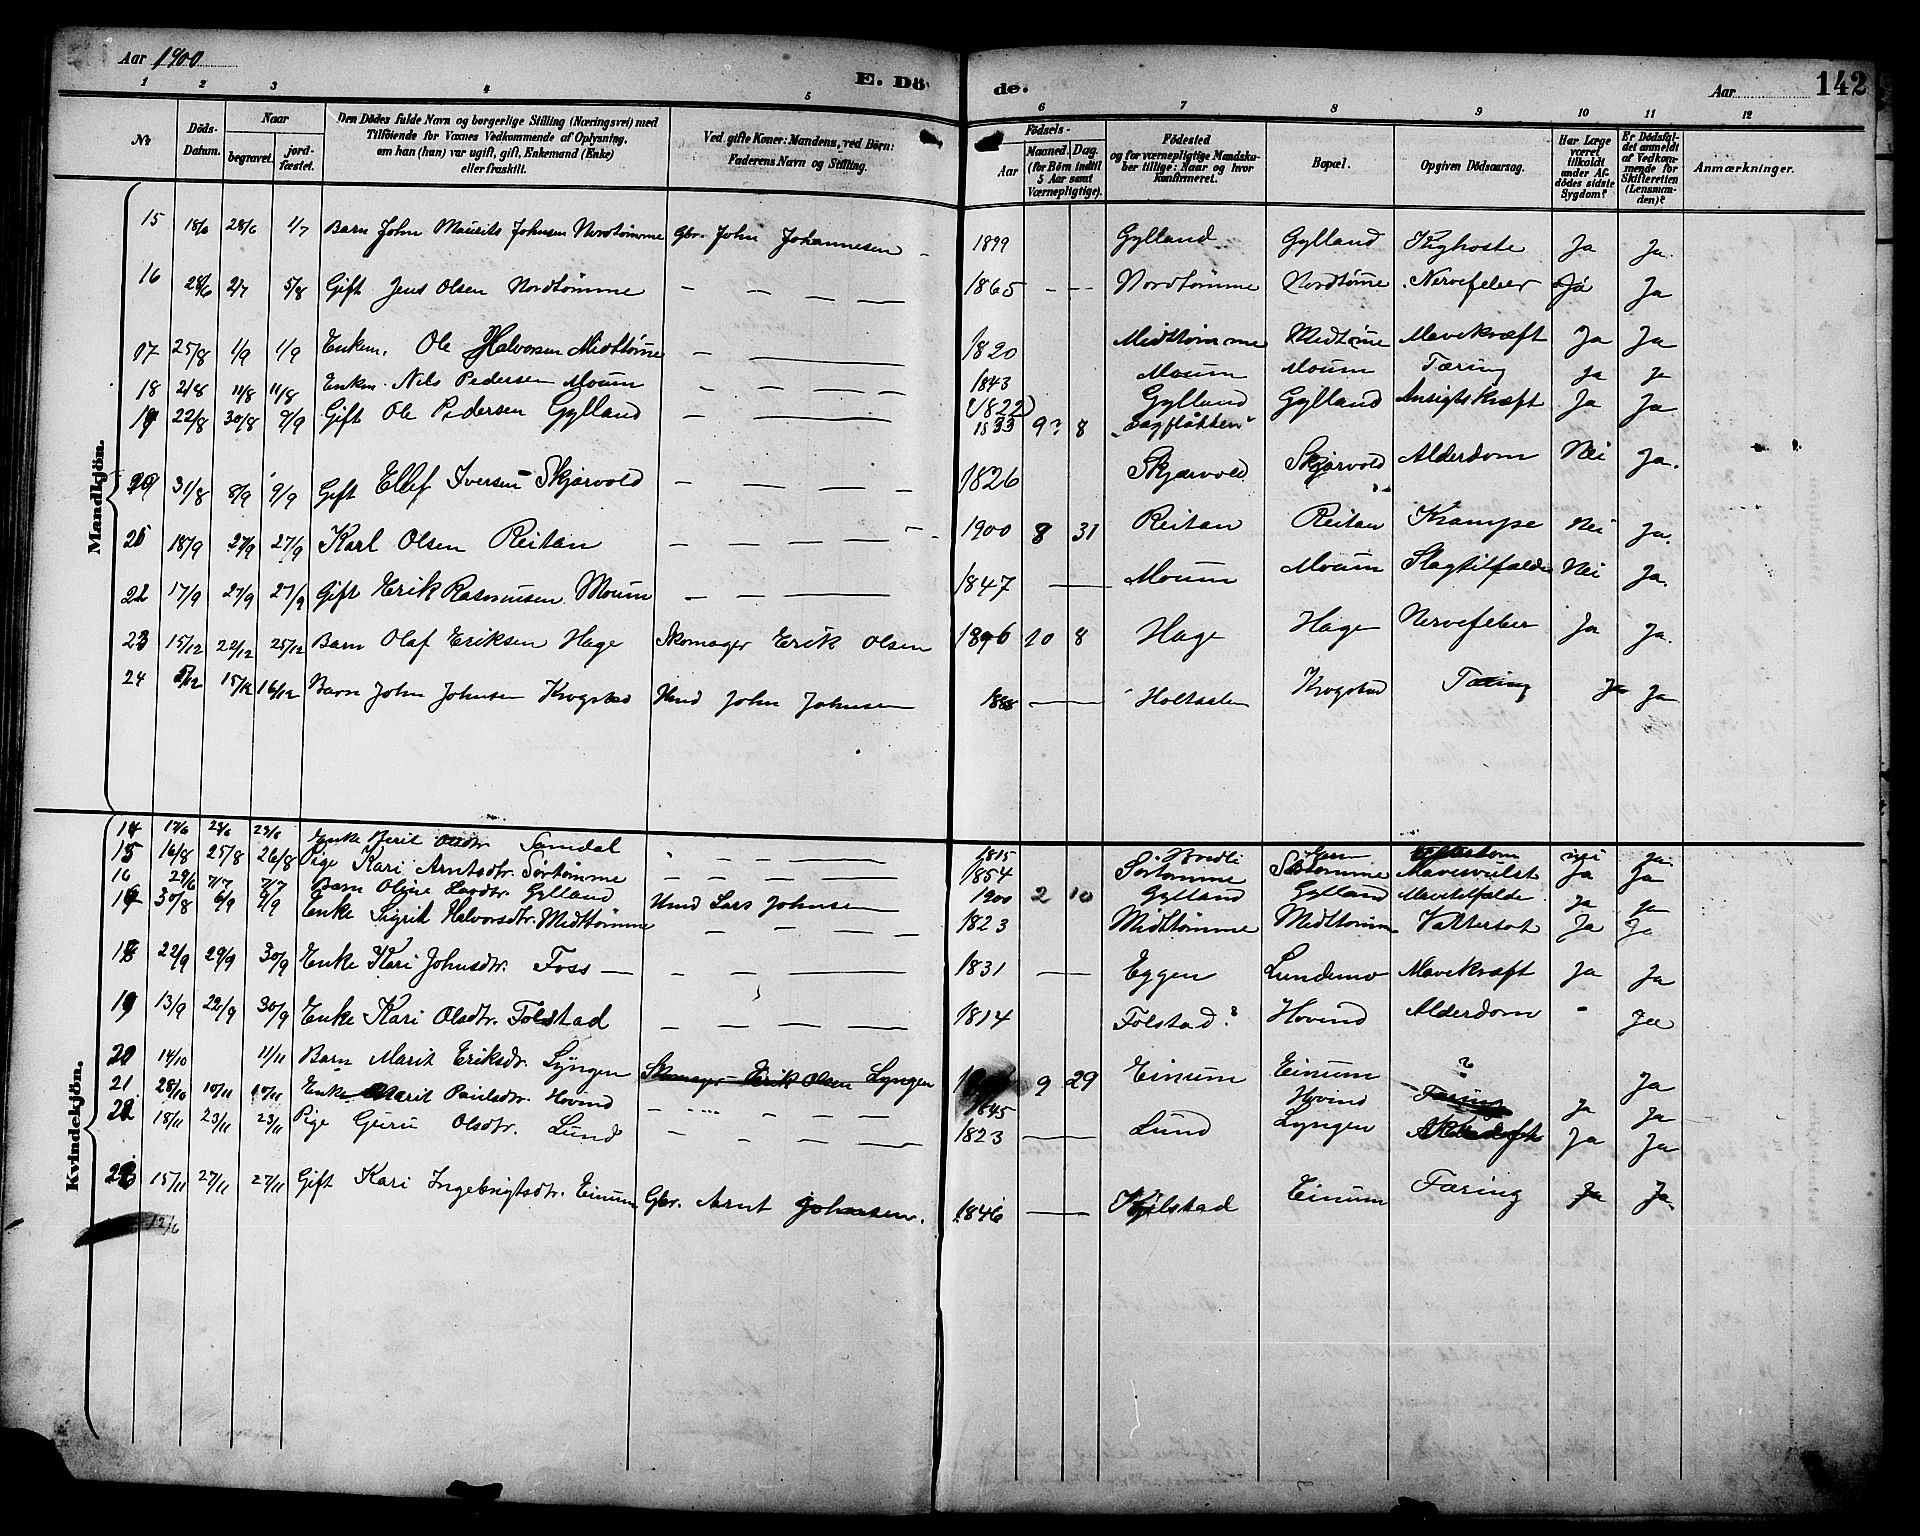 Aar 1900
E. Dö de.
Aar
142
1 2 3 4 5 6 7 8 9 10 11 12
No
Döds-Datum.
Naar
begravet.
jord-fæstet.
Den Dödes fulde Navn og borgerlige Stilling (Næringsvei) med Tilföiende for Voxnes Vedkommende af Oplysning, om han (hun) var ugift, gift, Enkemand (Enke) eller fraskilt.
Ved gifte Koner: Mandens, ved Börn: Faderens Navn og Stilling.
Födsels-
Aar
Maaned. Dag.
(for Börn indtil 5 Aar samt Værnepligtige).
Födested og for værnepligtige Mandska-ber tillige: Naar og hvor konfirmeret.
Bopæl.
Opgiven Dödsaarsag.
Har Læge været tilkaldt under Af-dödes sidste Sygdom?
Er Dödsfal-det anmeldt af Vedkom-mende for Skifteretten (Lensman-den)?
Anmærkninger.
Mandkjön.
15 18/6 28/6 1/7 Barn John Maurits Johnsen Nordtømme Gbr. John Johannesen 1899 Gylland Gylland Kighoste Ja Ja.
16 28/6 2/7 5/8 Gift Jens Olsen Nordtømme — — — — 1865 - - - Nordtømme Nordtømme Nervefeber Ja Ja
17 25/8 1/9 1/9 Enkem. Ole Halvorsen Midttømme — — 1820 Midttømme Midtømme Mavekræft Ja Ja
18 21/8 11/8 11/8 Enkm. Nils Pedersen Moum — — — — 1843 Moum Moum Tæring Ja Ja
19 22/8 30/8 9/9 Gift Ole Pedersen Gylland — — (1822) Gylland Gylland Ansigtskræft Ja Ja
1833 9? 8
20 31/8 8/9 9/9 Gift Ellef Iversen Skjærvold — — — — 1826 Skjærvold Skjærvold Alderdom Nei Ja.
21 18/9 27/9 27/9 Karl Olsen Reitan — — — — 1900 8 31 Reitan Reitan Krampe Nei Ja.
22 17/9 27/9 27/9 Gift Erik Rasmussen Moum — — — 1847 — Moum Moum Slagtilfælde Nei Ja.
23 15/12 22/12 25/12 Barn Olaf Eriksen Hage Skomager Erik Olsen 1896 10 8 Hage Hage Nervefeber Ja Ja.
24 5/12 15/12 16/12 Barn John Johnsen Krogstad Hmd John Johnsen 1888 — Holtaalen Krogstad Tæring Ja Ja
Kvindekjön.
14 17/6 23/6 23/6 Enke Berit Olsdtr. Samdal — — — 1815 Bordli nei Ja
15 16/8 25/8 26/8 Pige Kari Arntsdtr. Sørtømme — — — 1854 Sørtømme Sørtømme Mavesvulst Ja Ja
16 29/6 7/7 7/7 Barn Oline Larsdtr. Gylland Hmd Lars Johnsen 1900 2 10 Gylland Gylland Mavetilfælde Ja Ja
17 30/8 6/9 9/9 Enke Sigrid Halvorsdtr. Midttømme — — — — 1823 Midttømme Midttømme Vattersot Ja Ja
18 22/9 29/9 30/9 Enke Kari Johnsdtr. Foss — — — — 1831 — Eggen Lundemo Mavekræft Ja Ja
19 13/9 22/9 30/9 Enke Kari Olsdtr. Folstad — — — — 1814 Folstad? Hovind Alderdom - Ja
20 14/10 11/11 Barn Marit Eriksdtr. Lyngen Skomager Erik Olsen Lyngen 9 29 Einum Einum ? Ja
21 28/10 10/11 10/11 Enke Marit Paulsdtr. Hovind — — — 1845 Hovind Tæring Ja Ja
22 18/11 23/11 23/11 Pige Guru Olsdtr. Lund — — — — 1823 — Lund Lyngen Ja Ja
23 15/11 27/11 27/11 Gift Kari Ingebrigtsdtr. Einum Gbr. Arnt Johnsen. 1846 — Kjelstad Einum Tæring Ja Ja.
12/6